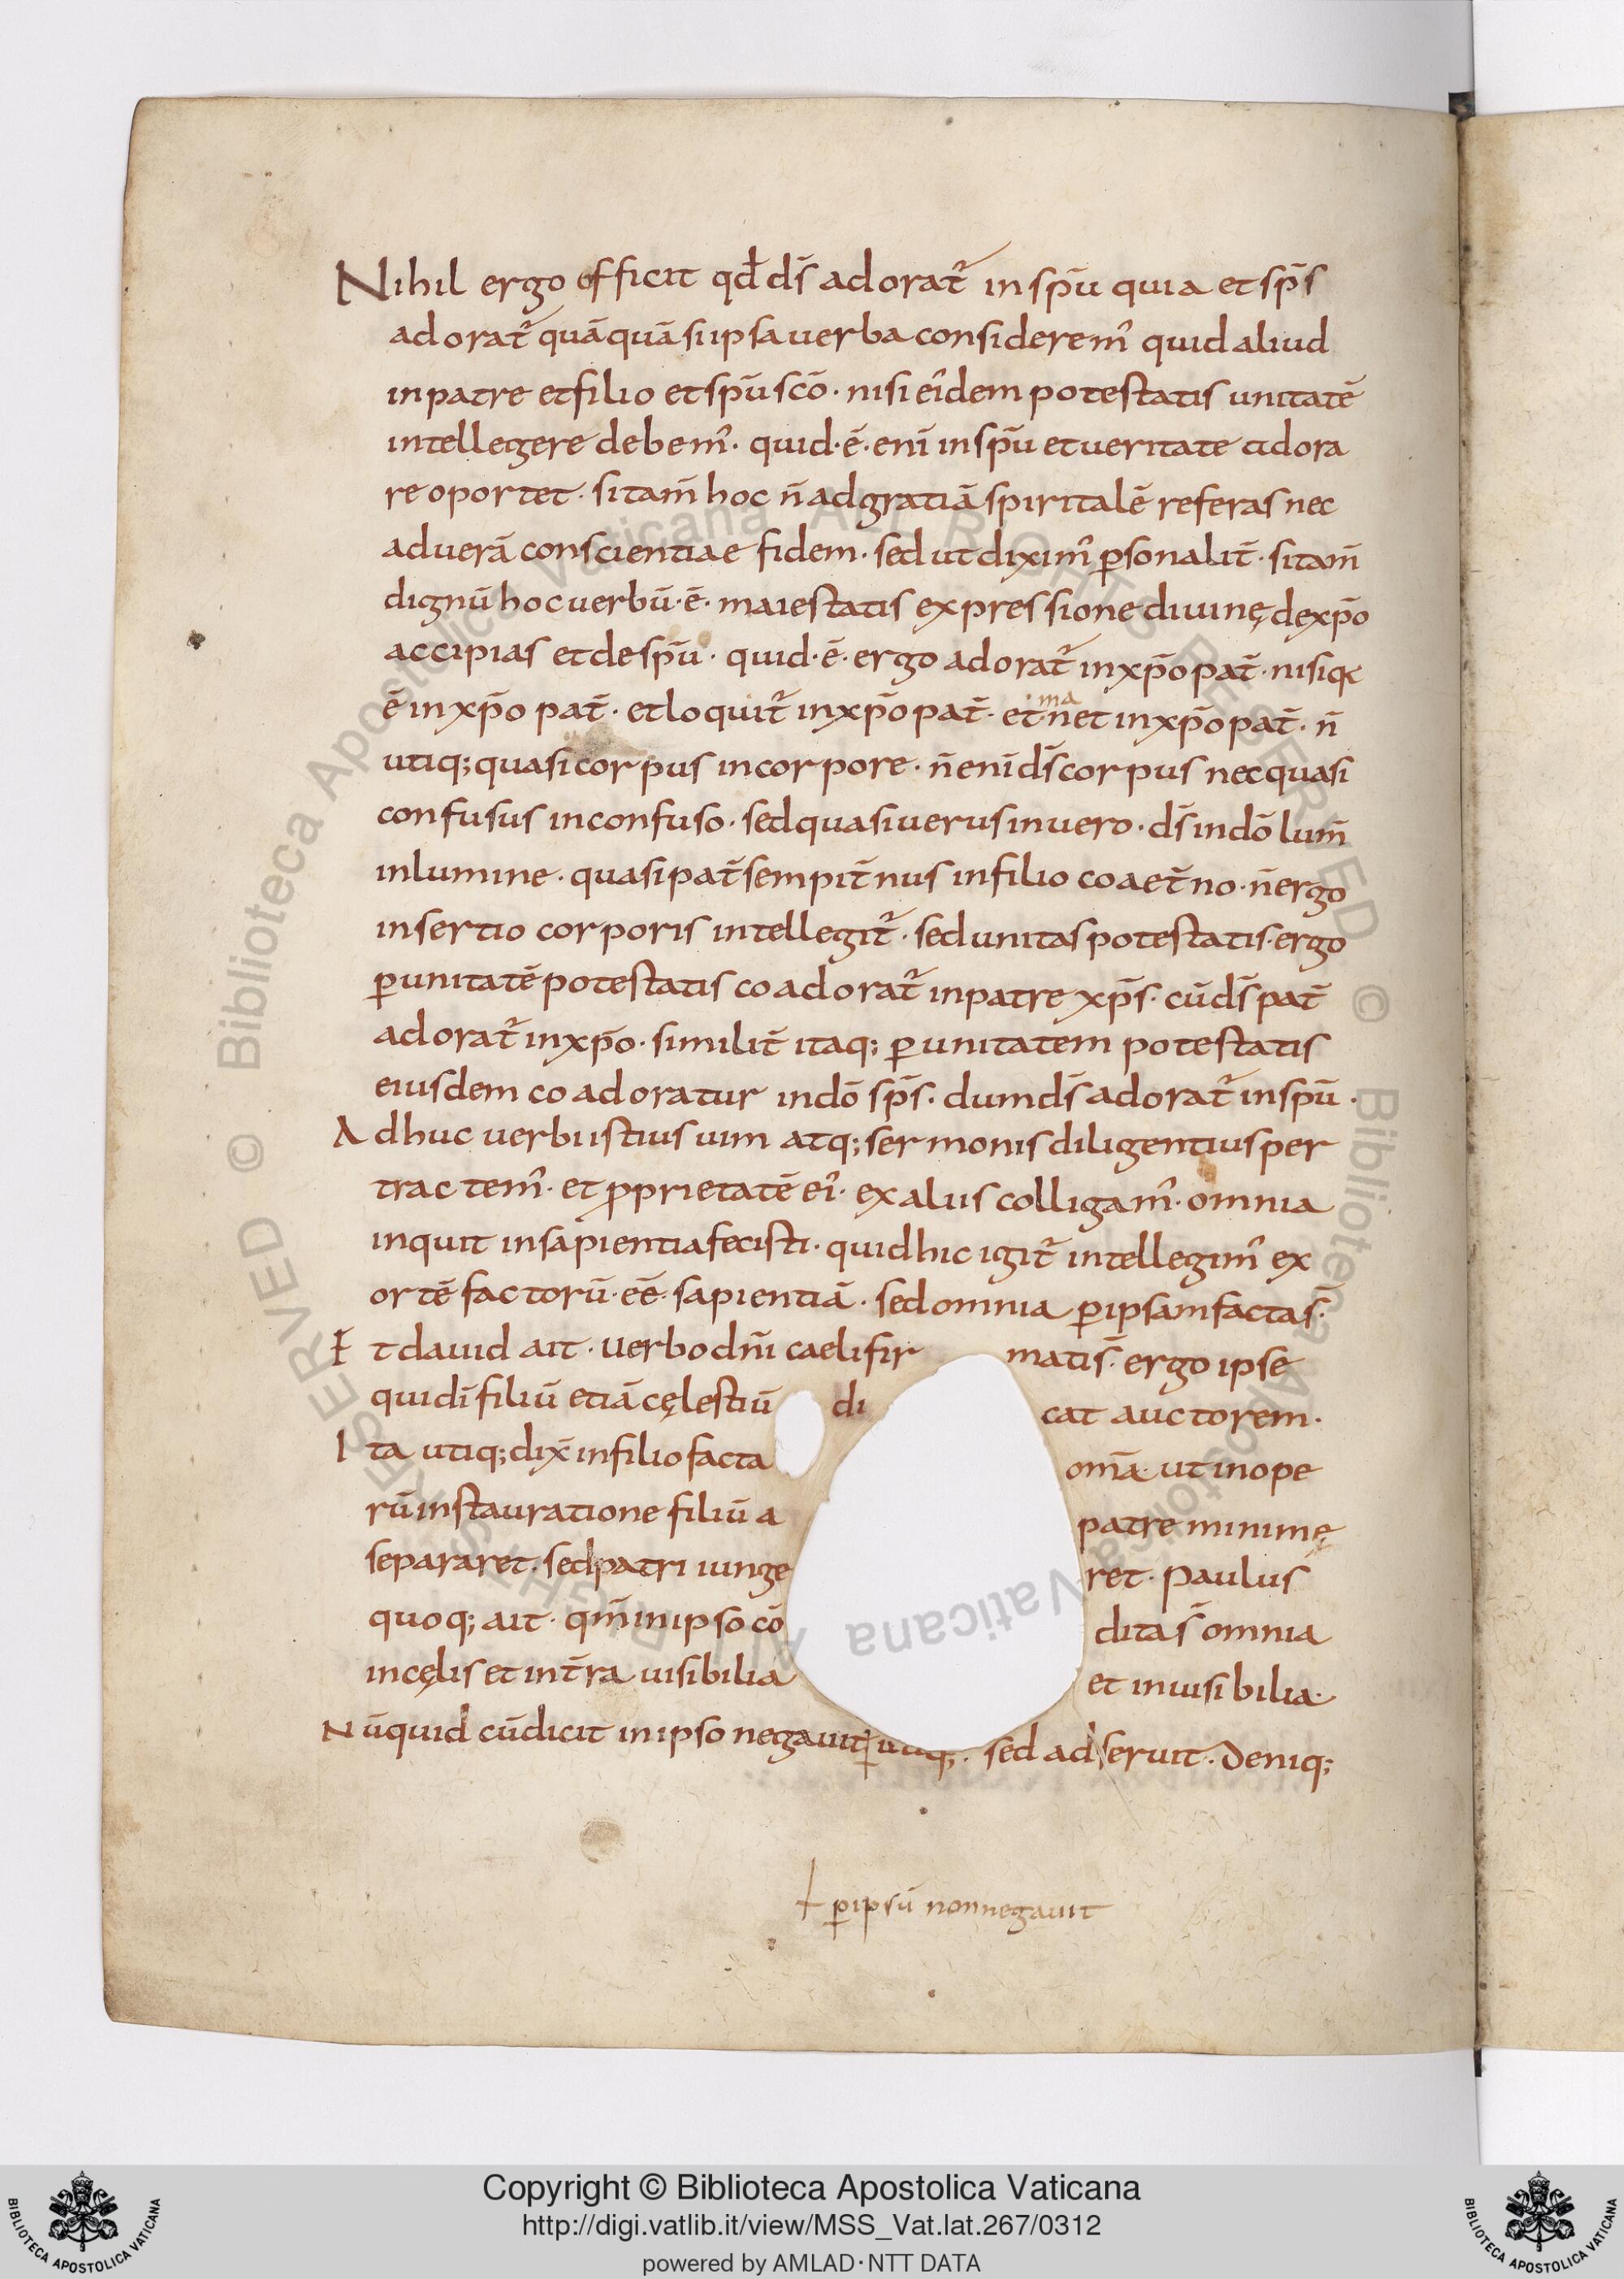 Nihil ergo officit qđ ds̄ adorat᷒ in sp̄u quia et sp̄s
adorat᷒ quāquā si ipsa uerba consideremꝰ quid aliud
in patre et filio et sp̄u scō · nisi eiꝰdem potestatis unitatē
intellegere debemꝰ · quid · ē · eni in sp̄u et ueritate adora
re oportet · si tam̄ hoc n̄ ad gratiā spiritalē referas nec
ad uerā conscientiae fidem · sed ut diximꝰ ꝑsonalit̄ · si tam̄
dignū hoc uerbū · ē · maiestatis expressione diuinę de xp̄o
accipias et de sp̄u · quid · ē · ergo adorat᷒ in xp̄o pat̄ · nisi q
ē in xp̄o pat̄ · et loquit᷒ in xp̄o pat̄ · et
ma
net in xp̄o pat̄ · n̄
utiq; quasi corpus in corpore · n̄ eni ds̄ corpus nec quasi
confusus in confuso · sed quasi uerus in uero · ds̄ in dō lum̄
in lumine · quasi pat̄ sempit̄nus in filio coaet̄no · n̄ ergo
insertio corporis intellegit᷒ · sed unitas potestatis · ergo
ꝑ unitatē potestatis coadorat᷒ in patre xp̄s · cū ds̄ pat̄
adorat᷒ in xp̄o · similit̄ itaq; ꝑ unitatem potestatis
eiusdem coadoratur in dō sp̄s · dum ds̄ adorat᷒ in sp̄u ·
Adhuc uerbi istius uim atq; sermonis diligentius per
tractemꝰ · et ꝓprietatē eiꝰ · ex aliis colligamꝰ · omnia
inquit in sapientia fecisti · quid hic igit᷒ intellegimꝰ ex
ortē factorū · eē · sapientiā · sed omnia ꝑ ipsam facta s̄ ·
Et dauid ait · uerbo dn̄i caeli fir matis̄ · ergo ipse
qui dī filiū etiā cęlestiū di cat auctorem ·
Ita utiq; dix̄ in filio facta om̄a · ut in ope
rū instauratione filiū a patre minimę
separaret · sed patri iunge ret · paulus
quoq; ait · qm̄ in ipso cō dita s̄ omnia
in cęlis et in t̄ra uisibilia et inuisibilia ·
Nūquid cū dicit in ipso negauit ꝑ utiq; · sed adseruit · Deniq;
ꝑ ipsū non negauit
© Biblioteca Apostolica Vaticana ALL RIGHTS RESERVED © Biblioteca Apostolica Vaticana ALL RIGHTS RESERVED
Copyright © Biblioteca Apostolica Vaticana
http://digi.vatlib.it/view/MSS_Vat.lat.267/0312
powered by AMLAD·NTT DATA
BIBLIOTECA APOSTOLICA VATICANA
BIBLIOTECA APOSTOLICA VATICANA